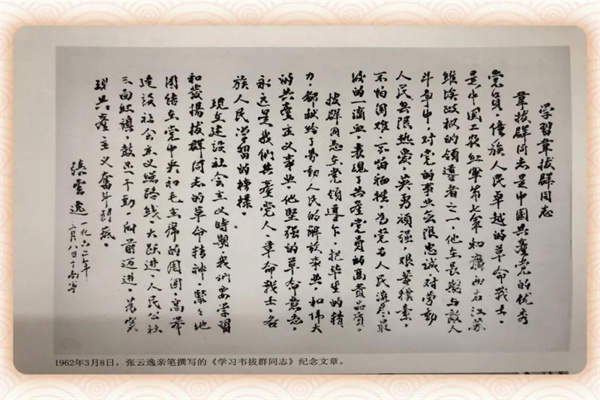 学習韋拔群同志
韋拔群同志是中国共產党的优秀
党員,僮族人民卓越的革命战士,
是中国工农红軍第七軍和廣西右江苏
维埃政权的領導者之一,他在長期与敌人
斗争中,对党的事业无限忠诚,对劳動
人民无限热爱,英勇顽强,艰苦樸素,
不怕困难,不怕犧牲,为党为人民流尽最
後的一滴血,表現了共產党員的高貴品質。
拔群同志在党領導下,把毕生的精
力,都献给了劳動人民的解放事业,和伟大
的共產主义事业,他坚强的革命意志,
永远是我們共產党人、革命战士、各
族人民学習的榜樣。
現在建設社会主义時期,我們要学習
和發揚拔群同志的革命精神,緊々地
团结在党中央和毛主席的周圍,高举
建設社会主义总路线、大跃进、人民公社
三面红旗,鼓足干劲,向前迈进,为实
現共產主义奮斗到底。
張雲逸 一九六二年
三月八日于南宁
1962年3月8日,张云逸亲笔撰写的《学习韦拔群同志》纪念文章。